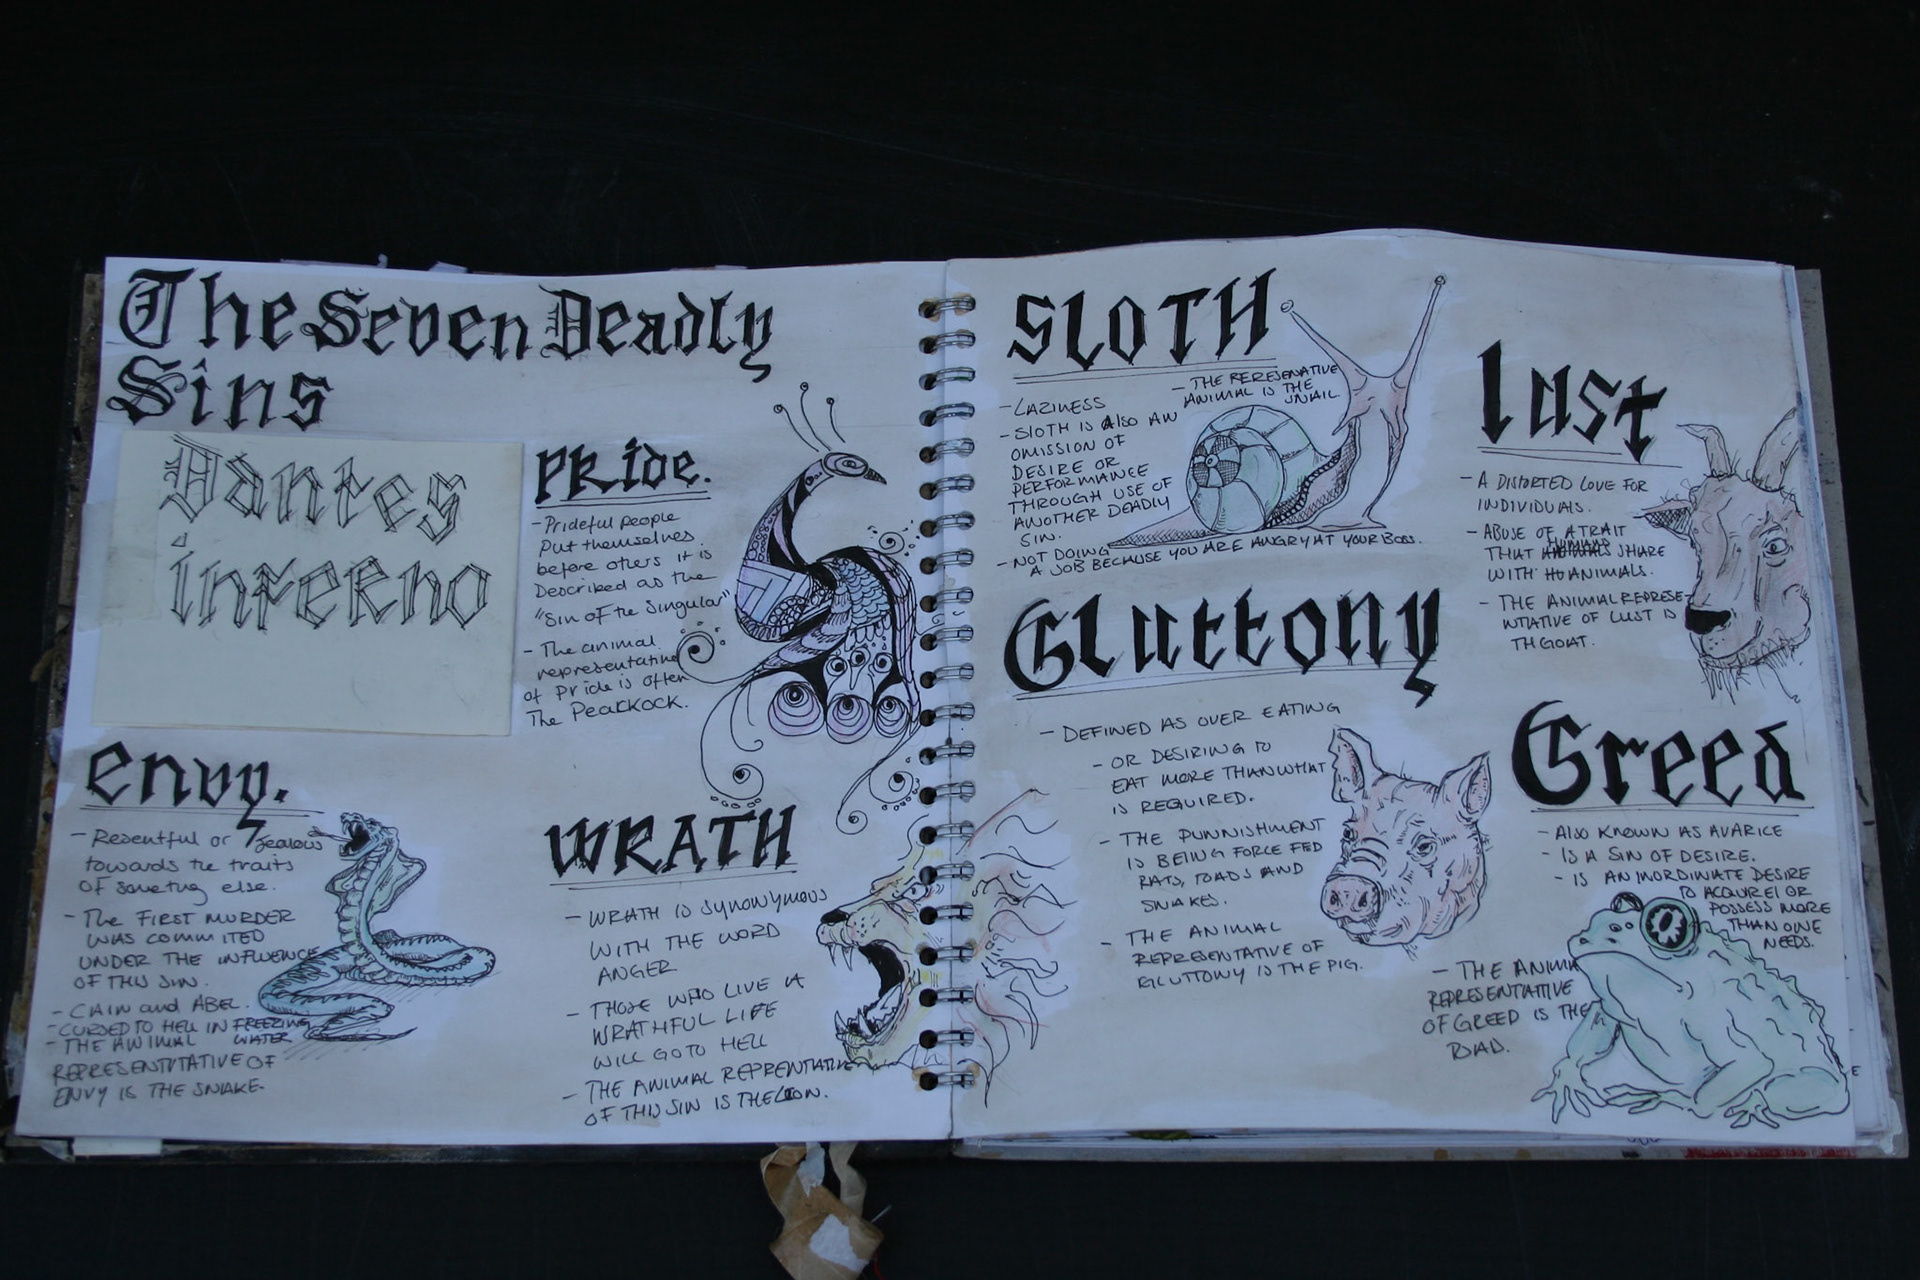 The Seven Deadly
Sins
Dantes
inferno
Pride.
- Prideful people
put themselves
before others it is
Described as the
"Sin of the Singular"
- The animal
representative
of Pride is often
The Pearkock.
envy.
- Resentful or Jealous
towards the traits
of someting else.
- The FIRST MURDER
WAS COMMITED
UNDER THE INFLUENCE
OF THIS SIN.
- CAIN and ABEL.
- CURSED TO HELL IN FREEZING
WATER
- THE ANIMAL
REPRESENTITATIVE OF
ENVY IS THE SNAKE.
WRATH
- WRATH IS SYNONYMOUS
WITH THE WORD
ANGER
- THOSE WHO LIVE A
WRATHFUL LIFE
WILL GO TO HELL
- THE ANIMAL REPRENTATIVE
OF THIS SIN IS THE LION.
SLOTH
- THE RERESENATIVE
ANIMAL IS THE
SNAIL.
- LAZINESS
- SLOTH IS ALSO AN
OMISSION OF
DESIRE OR
PERFORMANCE
THROUGH USE OF
ANOTHER DEADLY
SIN.
- NOT DOING
A JOB BECAUSE YOU ARE ANGRY AT YOUR BOSS.
Lust
- A DISTORTED LOVE FOR
INDIVIDUALS.
- ABUSE OF A TRAIT
THAT HUMANS SHARE
WITH ANIMALS.
- THE ANIMAL REPRESE-
NTATIVE OF LUST IS
TH GOAT.
Gluttony
- DEFINED AS OVER EATING
- OR DESIRING TO
EAT MORE THAN WHAT
IS REQUIRED.
- THE PUNNISHMENT
IS BEING FORCE FED
RATS, TOADS AND
SNAKES.
- THE ANIMAL
REPRESENTATIVE OF
GLUTTONY IS THE PIG.
Greed
- ALSO KNOWN AS AVARICE
- IS A SIN OF DESIRE.
- IS AN INORDINATE DESIRE
TO ACQUIRE OR
POSSESS MORE
THAN ONE
NEEDS.
- THE ANIMA
REPRESENTATIVE
OF GREED IS THE
TOAD.